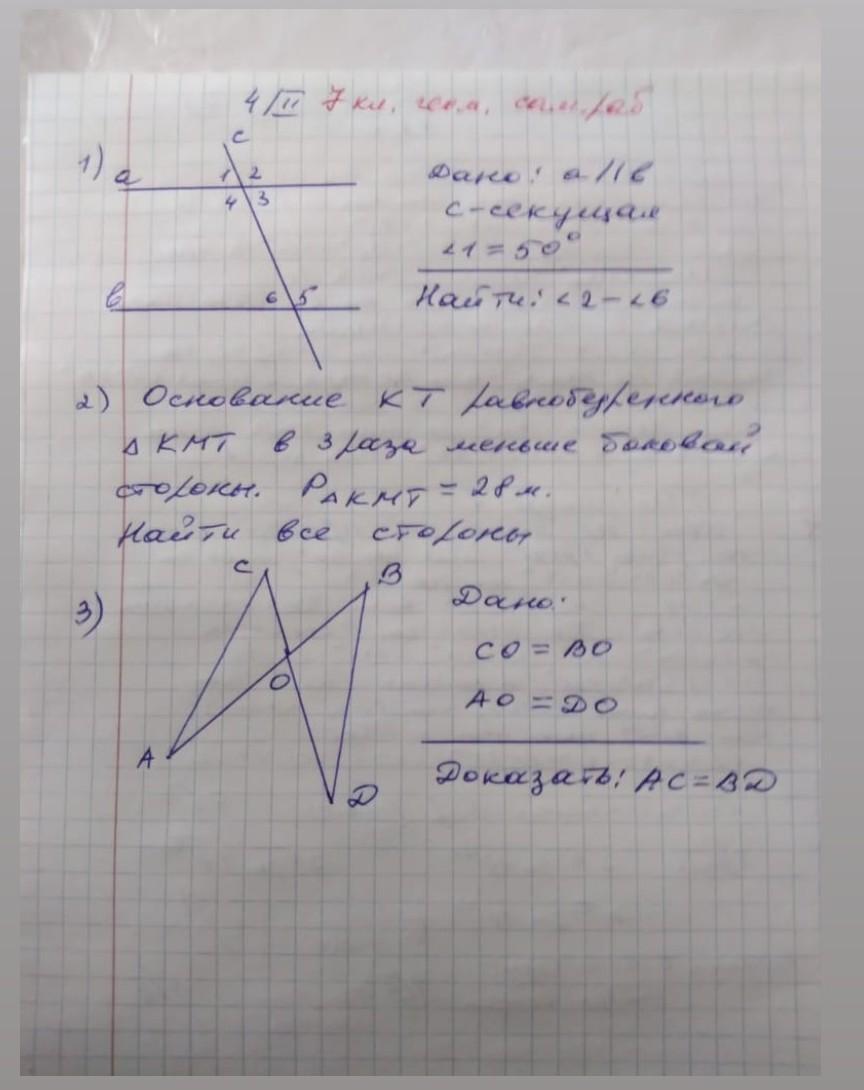 4/II 7 кл. геом. сам. раб
1)
c
a 1 2
4 3
в 6 5
Дано: a || в
c - секущая
∠1 = 50°
Найти: ∠2 - ∠6
2) Основание КТ равнобедренного
Δ КМТ в 3 раза меньше боковой
стороны. PΔКМТ = 28 м.
Найти все стороны
3)
C
B
O
A
D
Дано:
CO = BO
AO = DO
Доказать: AC = BD